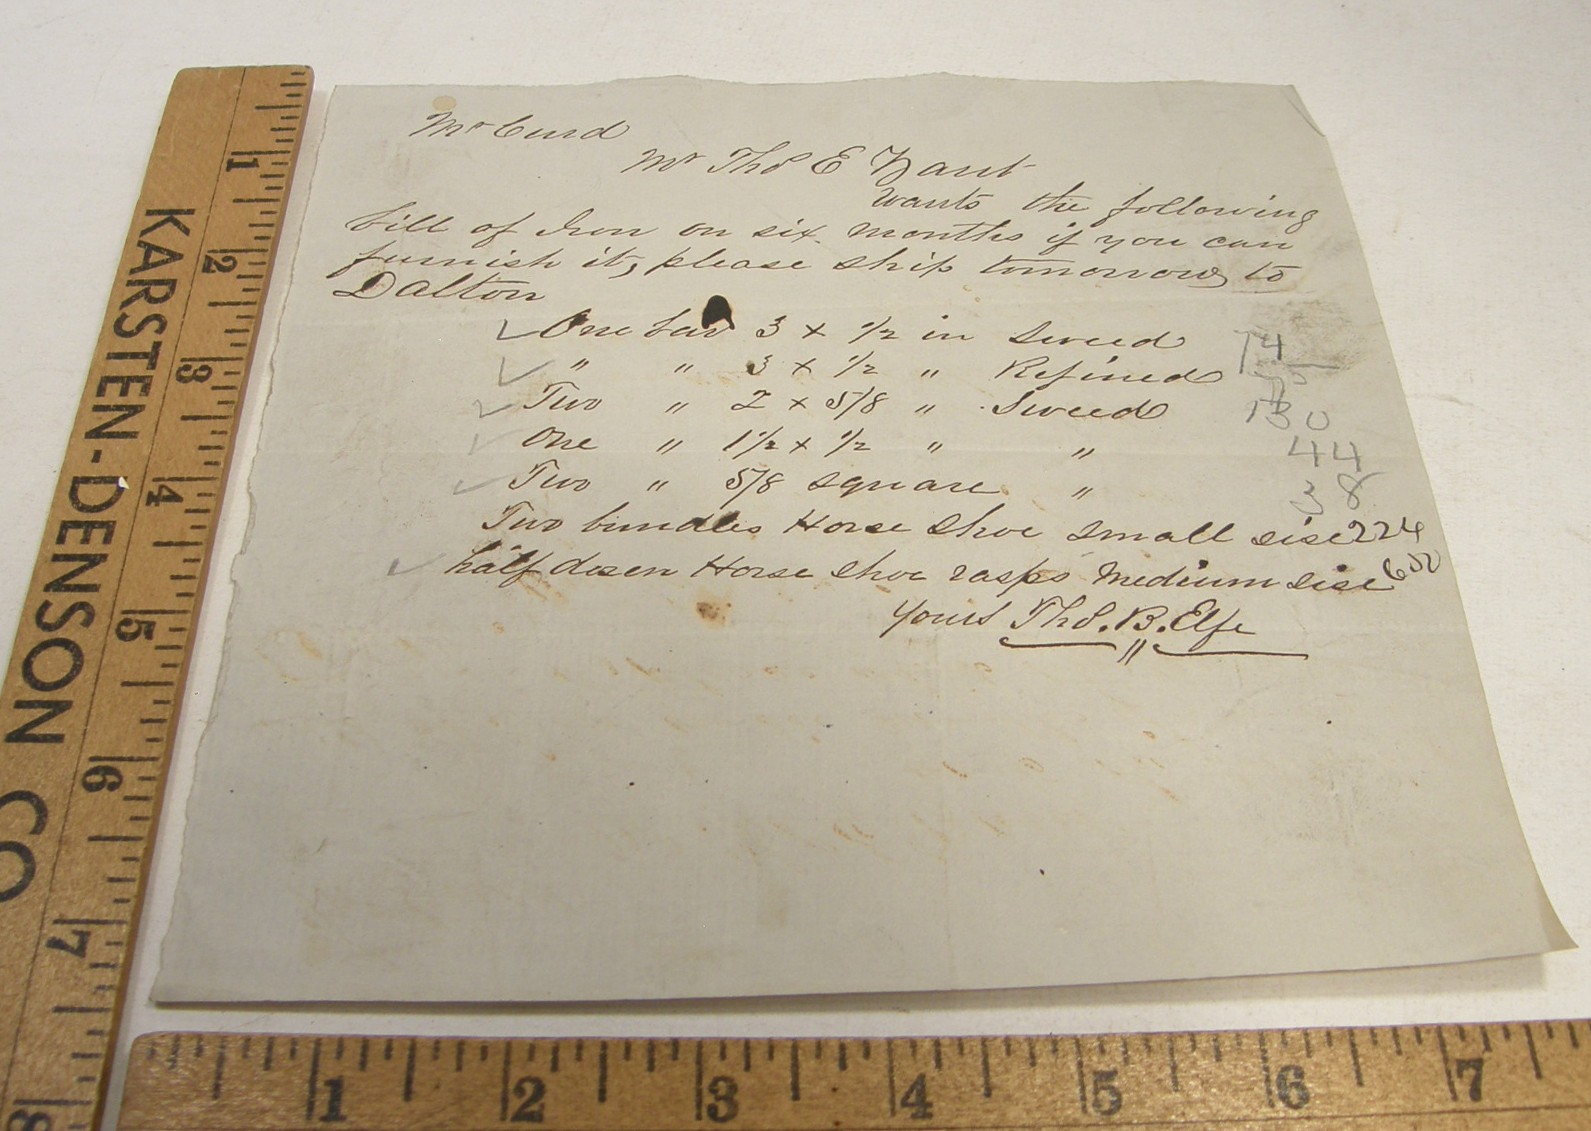 Mr Curd
Mr Tho E
wants the following
bill of Iron on six months if you can
furnish it, please ship tomorrow to
Dalton
One bar 3 x 1/2 in Sweed 74
" " 3 x 1/2 " Refined
Two " 2 x 5/8 " Sweed 130
One " 1 1/2 x 1/2 " " 44
Two " 5/8 square " 38
Two bundles Horse Shoe Small sise 224
half dosen Horse Shoe rasps Medium sise
Yours Tho. B. Elfe
KARSTEN-DENSON CO
1 2 3 4 5 6 7 8
1 2 3 4 5 6 7